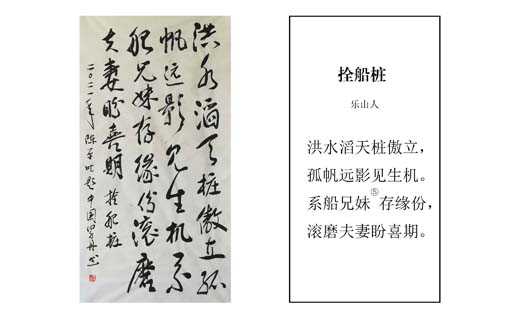 洪水滔天桩傲立孤
帆远影见生机系
船兄妹存缘份滚磨
夫妻盼喜期 拴船桩
二〇二一年
拴船桩
乐山人
洪水滔天桩傲立，
孤帆远影见生机。
系船兄妹⑤存缘份，
滚磨夫妻盼喜期。